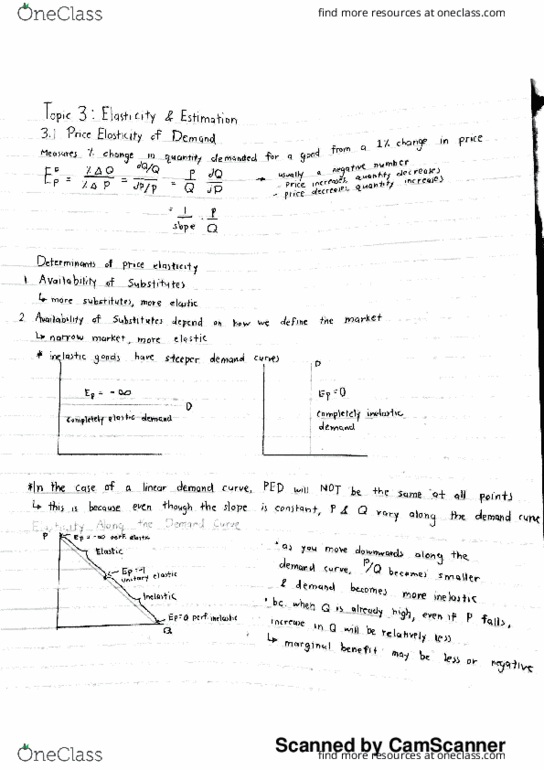 OneClass
find more resources at oneclass.com
Topic 3: Elasticity & Estimation
3.1 Price Elasticity of Demand
Measures % change in quantity demanded for a good from a 1% change in price
E_P^D = %ΔQ / %ΔP = (dQ/Q) / (dP/P) = P/Q dQ/dP → usually a negative number
- price increases, quantity decreases
- price decreases, quantity increases
= 1/slope · P/Q
Determinants of price elasticity
1. Availability of Substitutes
↳ more substitutes, more elastic
2. Availability of Substitutes depend on how we define the market
↳ narrow market, more elastic
* inelastic goods have steeper demand curves
D
Ep = - ∞
D
completely elastic demand
Ep = 0
completely inelastic
demand
*In the case of a linear demand curve, PED will NOT be the same at all points
↳ this is because even though the slope is constant, P & Q vary along the demand curve
Elasticity Along the Demand Curve
P
Ep = -∞ perf. elastic
Elastic
Ep = -1
unitary elastic
Inelastic
Ep=0 perf. inelastic
Q
* as you move downwards along the
demand curve, P/Q becomes smaller
& demand becomes more inelastic
* bc. when Q is already high, even if P falls,
increase in Q will be relatively less
↳ marginal benefit may be less or negative
Scanned by CamScanner
OneClass
find more resources at oneclass.com